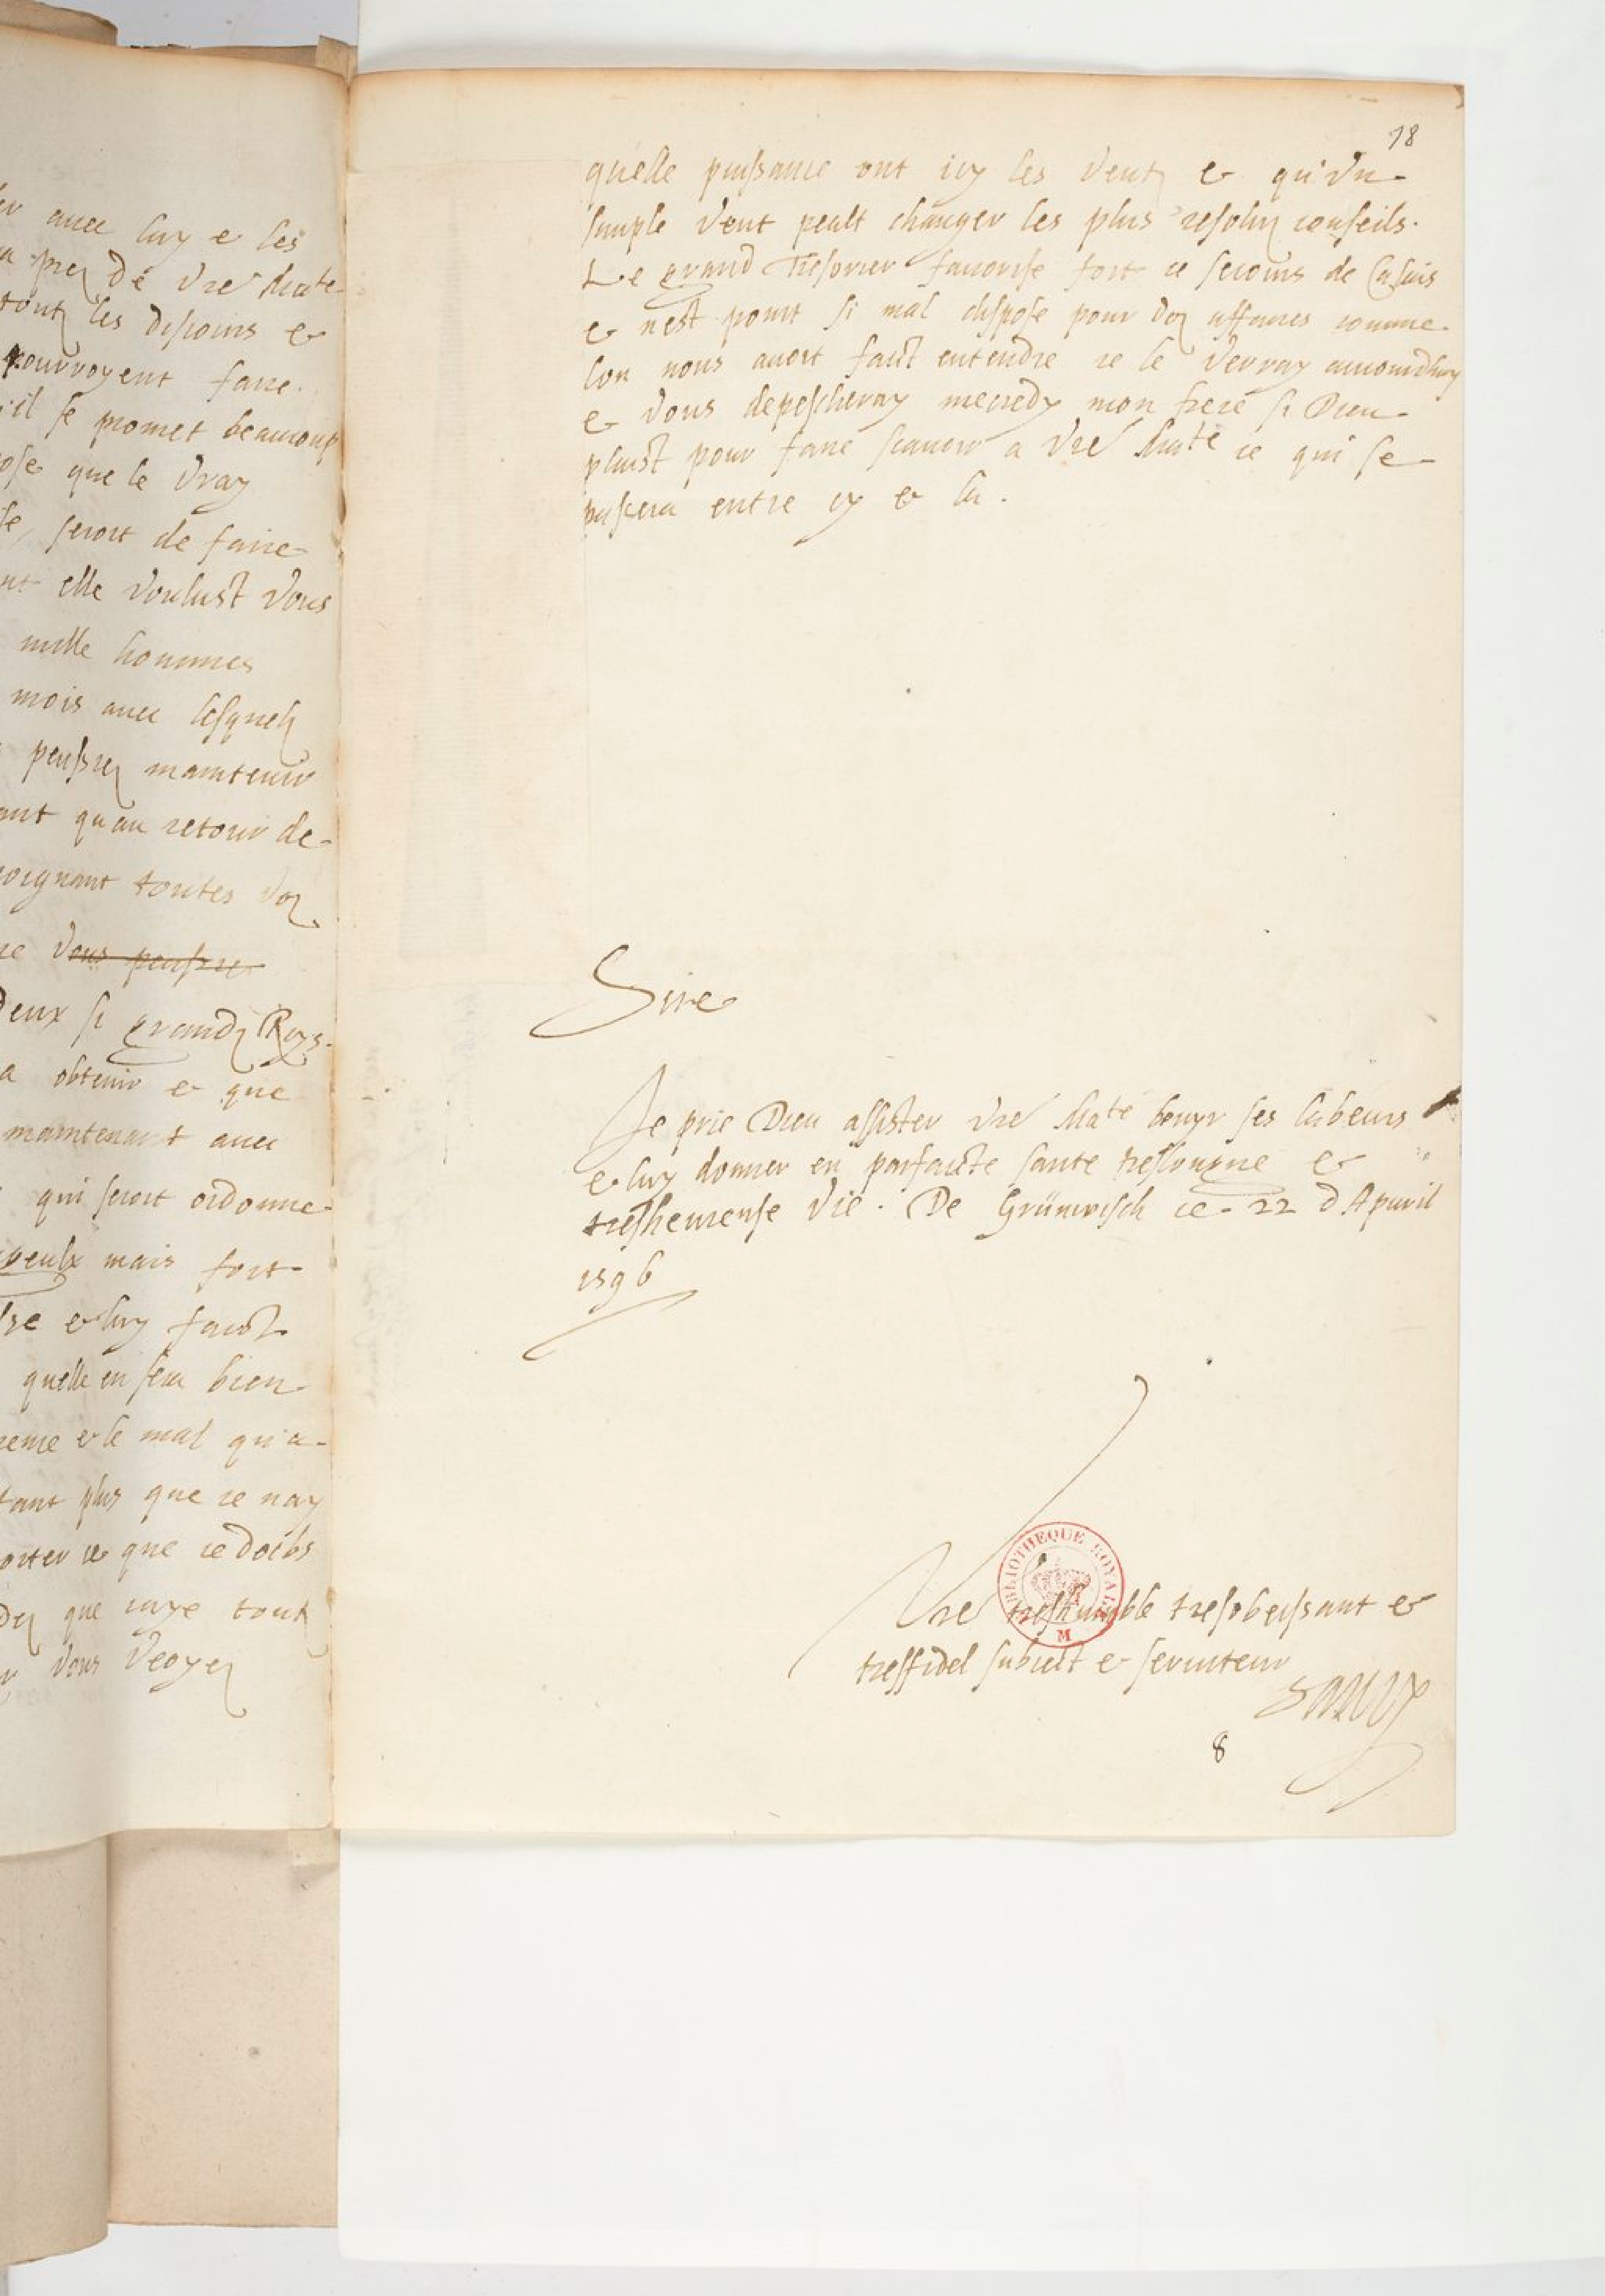 er avec luy e les
a prez de vre mate
tontz les discours &
pourroyent faire.
il se promet beaucoup
ose que le vray
se, seroit de faire
nt elle voulust vous
mille hommes
mois avec lesquelz
peussiez maintenir
ant quau retour de
joignant toutes voz
re vous peussie
deux si grandz Roys.
a obtenir & que
maintenant avec
qui seroit ordonne
peulx mais fort
e & luy faict
quelle en sera bien
e & le mal qu'a
tant plus que ie nay
orter ce que ie doibs
que iaye tout
vous veoyez
78
quelle puissance ont icy les ventz & qu'vn
simple vent peult changer les plus resoluz conseils.
Le grand Tresorier fauorise fort ce secours de Calais
& nest point si mal dispose pour voz affaires comme
lon nous auoit faict entendre ie le verray auiourdhuy
& vous depescheray mecredy mon frere si Dieu
plaist pour faire scauoir a vre Mate ce qui se
passera entre cy & la.
Sire
Je prie Dieu assister vre Mate benyr ses labeurs
& luy donner en parfaicte sante treslongue &
tresheureuse vie. De Grünwisch ce 22 d'Apuril
1596
Vre treshumble tresobeissant &
tresfidel subiect & seruiteur
Sancy
8
BIBLIOTHEQUE ROYALE
M